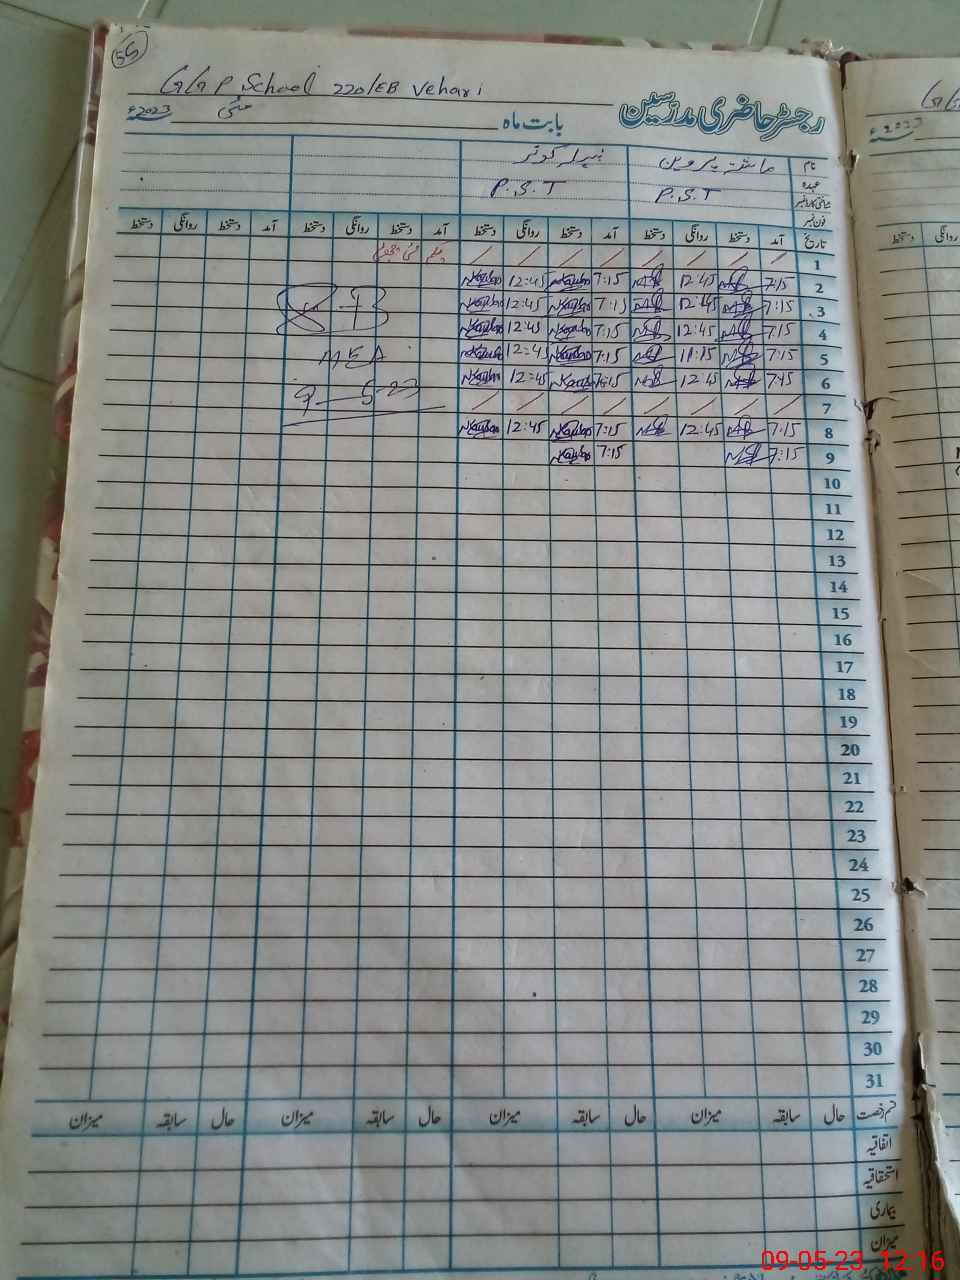 55
GGP School 220/EB Vehari
رجسٹر حاضری مدرسین
بابت ماہ مئی 2023ء
نام
P.S.T P.S.T
عہدہ
فون نمبر
تاریخ آمد دستخط روانگی دستخط آمد دستخط روانگی دستخط آمد دستخط روانگی دستخط آمد دستخط روانگی دستخط
1 یکم مئی
2 7:15 12:45 7:15 12:45
3 7:15 12:45 7:15 12:45
4 7:15 12:45 7:15 12:45
5 7:15 11:15 7:15 12:45
MEA
6 7:15 12:45 7:15 12:45
9-5-23
7
8 7:15 12:45 7:15 12:45
9 7:15 7:15
10
11
12
13
14
15
16
17
18
19
20
21
22
23
24
25
26
27
28
29
30
31
قسم رخصت حال سابقہ میزان حال سابقہ میزان حال سابقہ میزان حال سابقہ میزان
اتفاقیہ
استحقاقیہ
بیماری
میزان
09-05-23 12:16
2023ء
تاریخ
روانگی دستخط